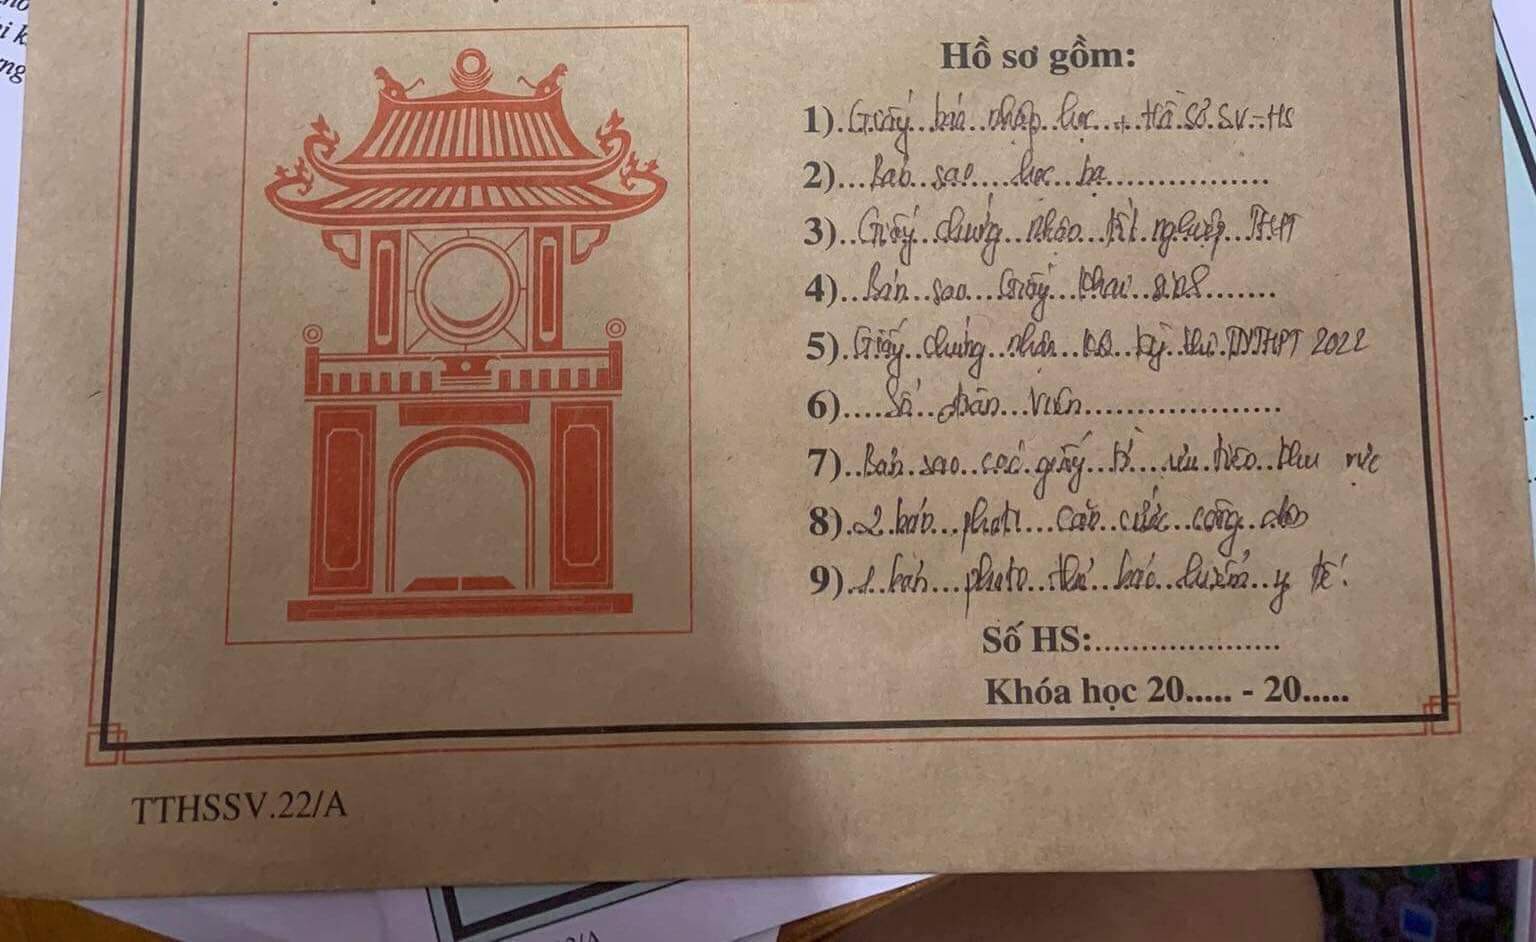 Hồ sơ gồm:
1) Giấy báo nhập học + Hồ Sơ SV-HS
2) Bản sao học bạ
3) Giấy chứng nhận tốt nghiệp THPT
4) Bản sao Giấy khai sinh
5) Giấy chứng nhận KQ kỳ thi TNTHPT 2022
6) Sổ đoàn viên
7) Bản sao các giấy tờ ưu tiên khu vực
8) 2 bản photo căn cước công dân
9) 1 bản photo thẻ bảo hiểm y tế.
Số HS:....................
Khóa học 20..... - 20.....
TTHSSV.22/A